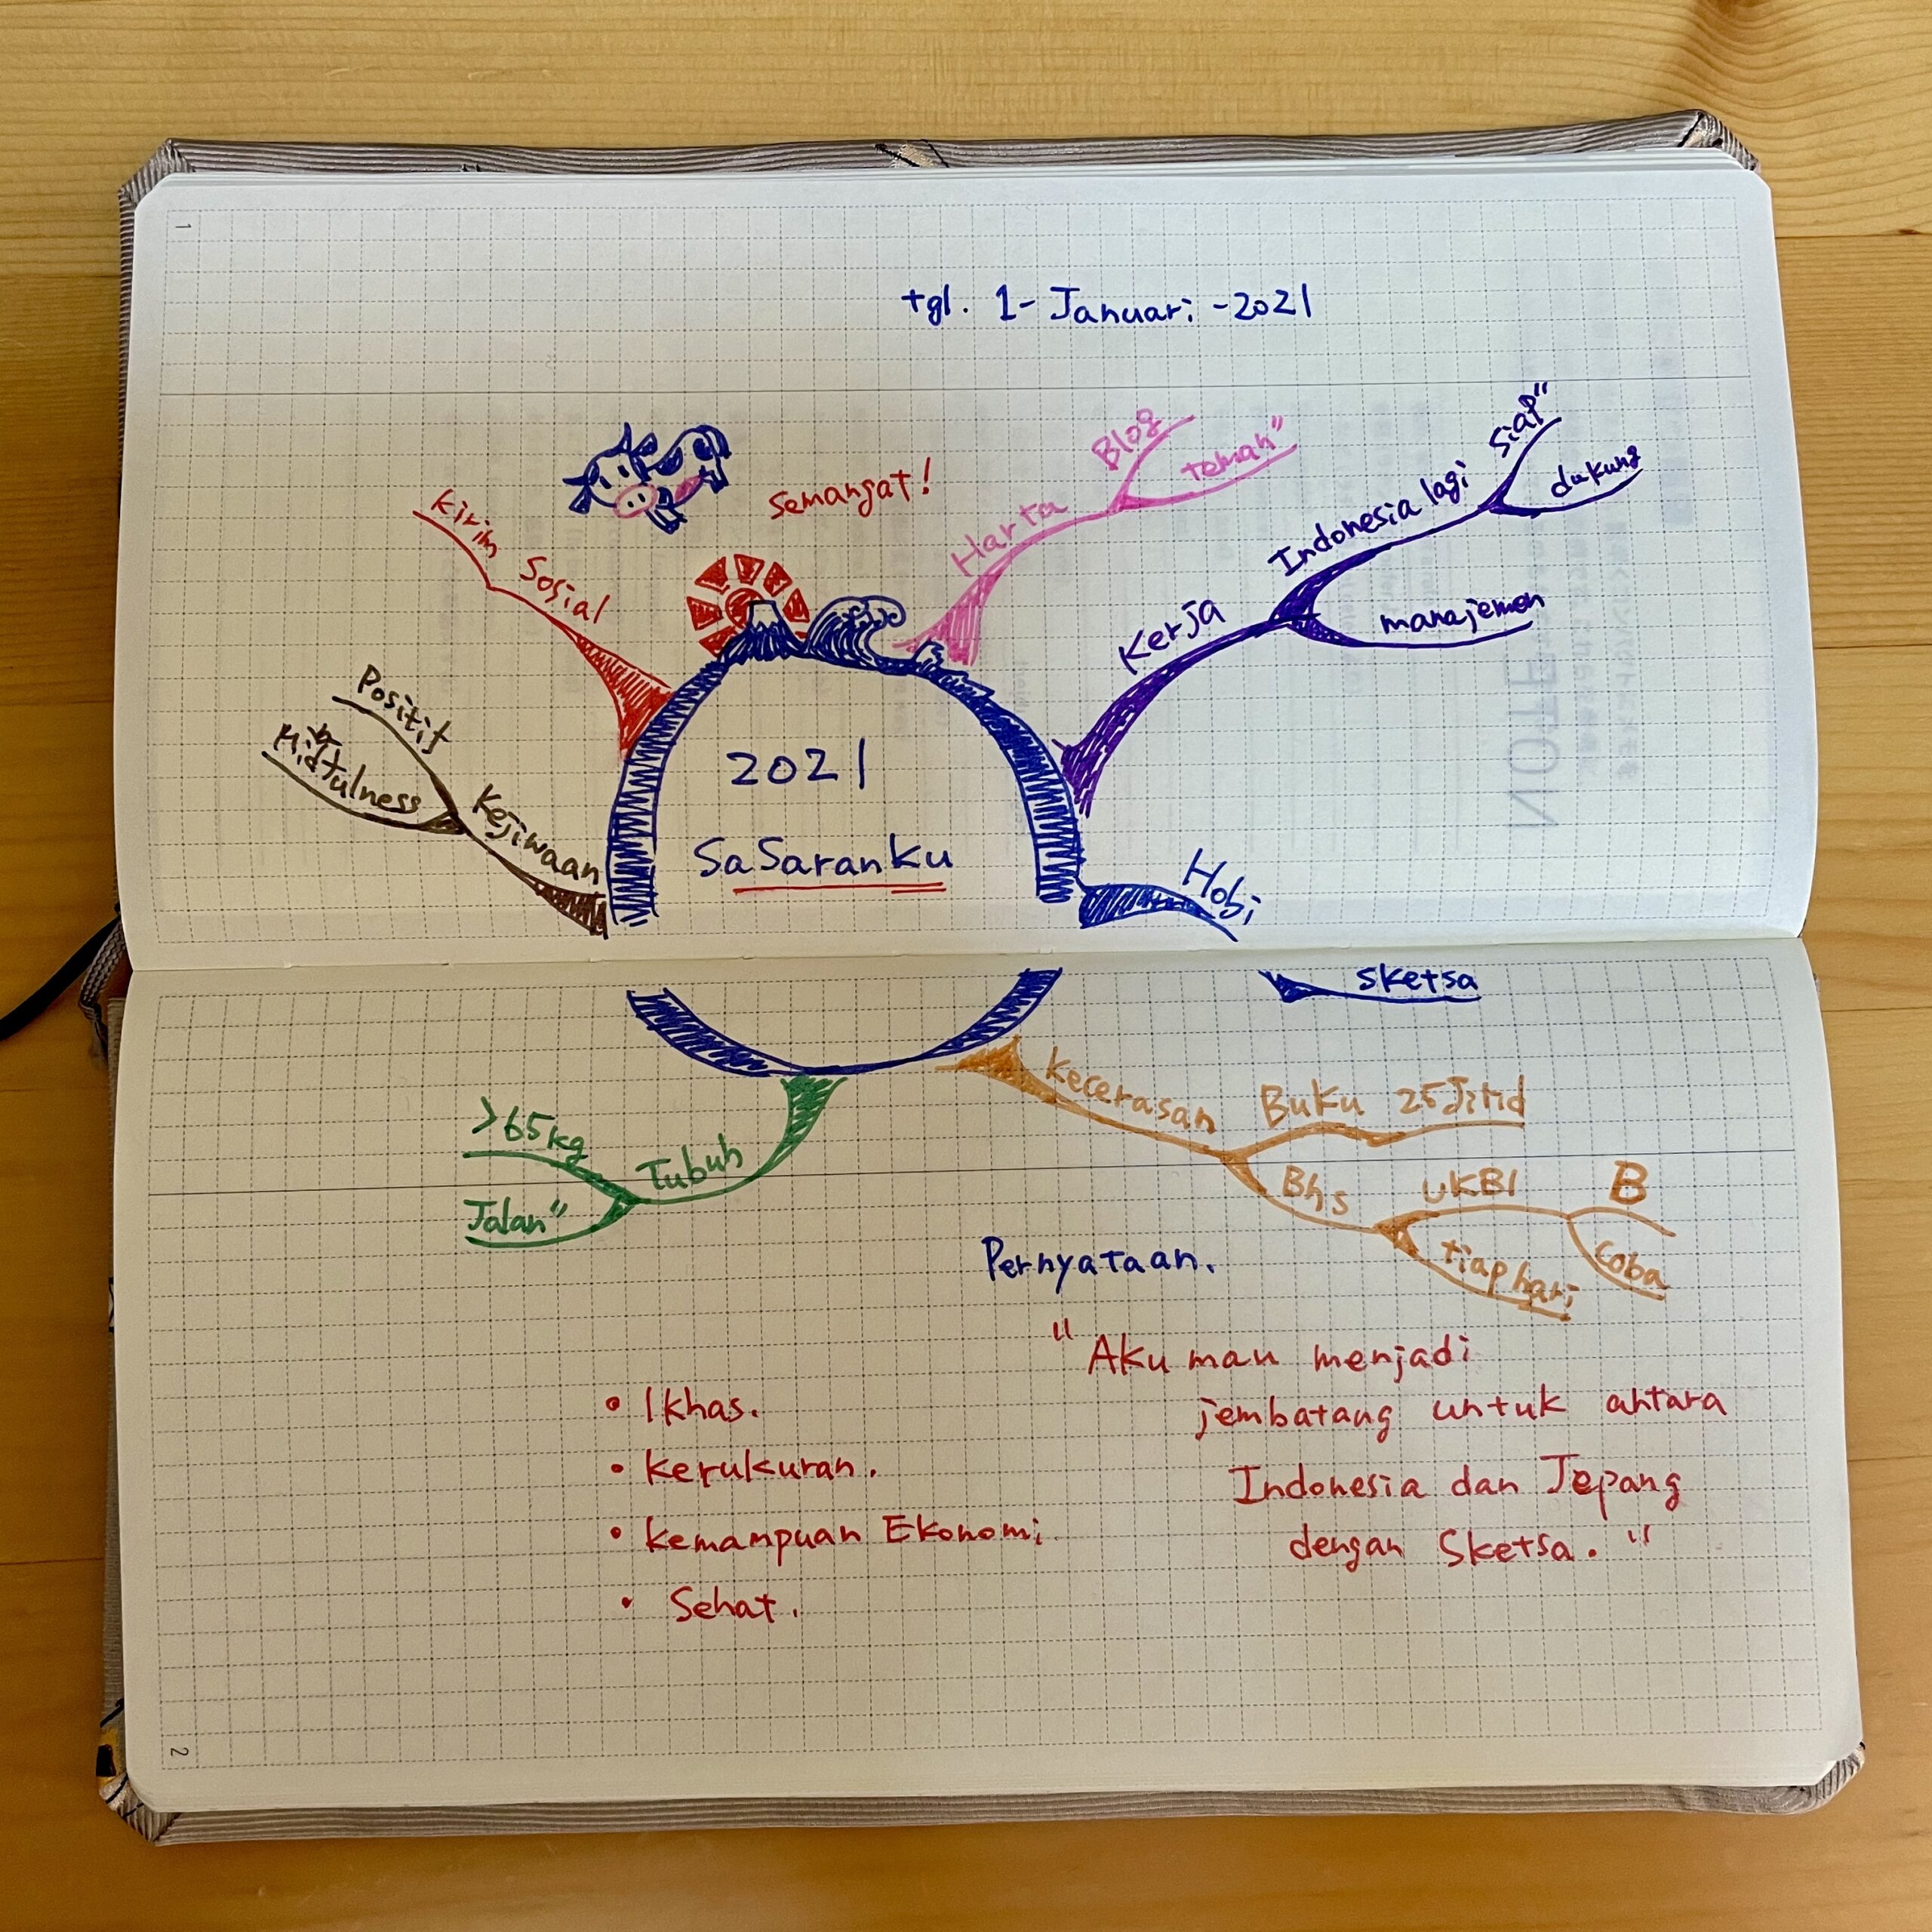 1
tgl. 1-Januari-2021
Semangat!
Blog
teman"
Harta
siap"
dukung
Indonesia lagi
manajemen
Kerja
Kirim
Sosial
Positif
Kejiwaan
2021
Sasaranku
Hobi
sketsa
>65kg
Tubuh
Jalan"
Kecerasan
Buku
Bhs
UKBI
B
Coba
tiap hari
Pernyataan.
"Aku mau menjadi
jembatang untuk antara
Indonesia dan Jepang
dengan Sketsa."
• Ikhas.
• kerukuran.
• kemampuan Ekonomi
• Sehat.
2
NOTE